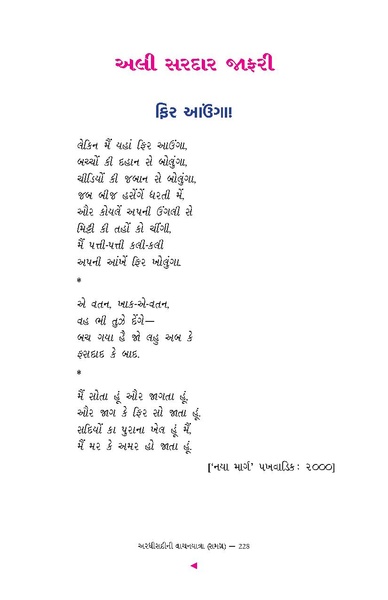 અલી સરદાર જાફરી
ફિર આઉંગા!
લેકિન મૈં યહાં ફિર આઉંગા,
બચ્ચોં કી દહાન સે બોલુંગા,
ચીડિયોં કી જબાન સે બોલુંગા,
જબ બીજ હસેંગેં ધરતી મેં,
ઔર કોયલેં અપની ઉંગલી સે
મિટ્ટી કી તહોં કો ચીંગી,
મૈં પત્તી-પત્તી કલી-કલી
અપની આંખેં ફિર ખોલુંગા.
*
એ વતન, ખાક-એ-વતન,
વહ ભી તુઝે દેંગે—
બચ ગયા હૈ જો લહુ અબ કે
ફસદાદ કે બાદ.
*
મૈં સોતા હૂં ઔર જાગતા હૂં,
ઔર જાગ કે ફિર સો જાતા હૂં,
સદિયોં કા પુરાના ખેલ હૂં મૈં,
મૈં મર કે અમર હો જાતા હૂં.
['નયા માર્ગ' પખવાડિક: ૨૦૦૦]
અરધીસદીની વાચનયાત્રા (સમગ્ર) — 228